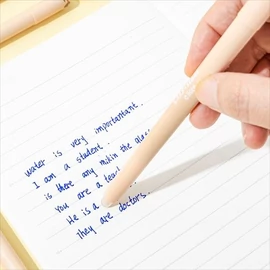 water is very important.
I am a student.
is there any milk in the glass
You are a
He is a
They are doctors.